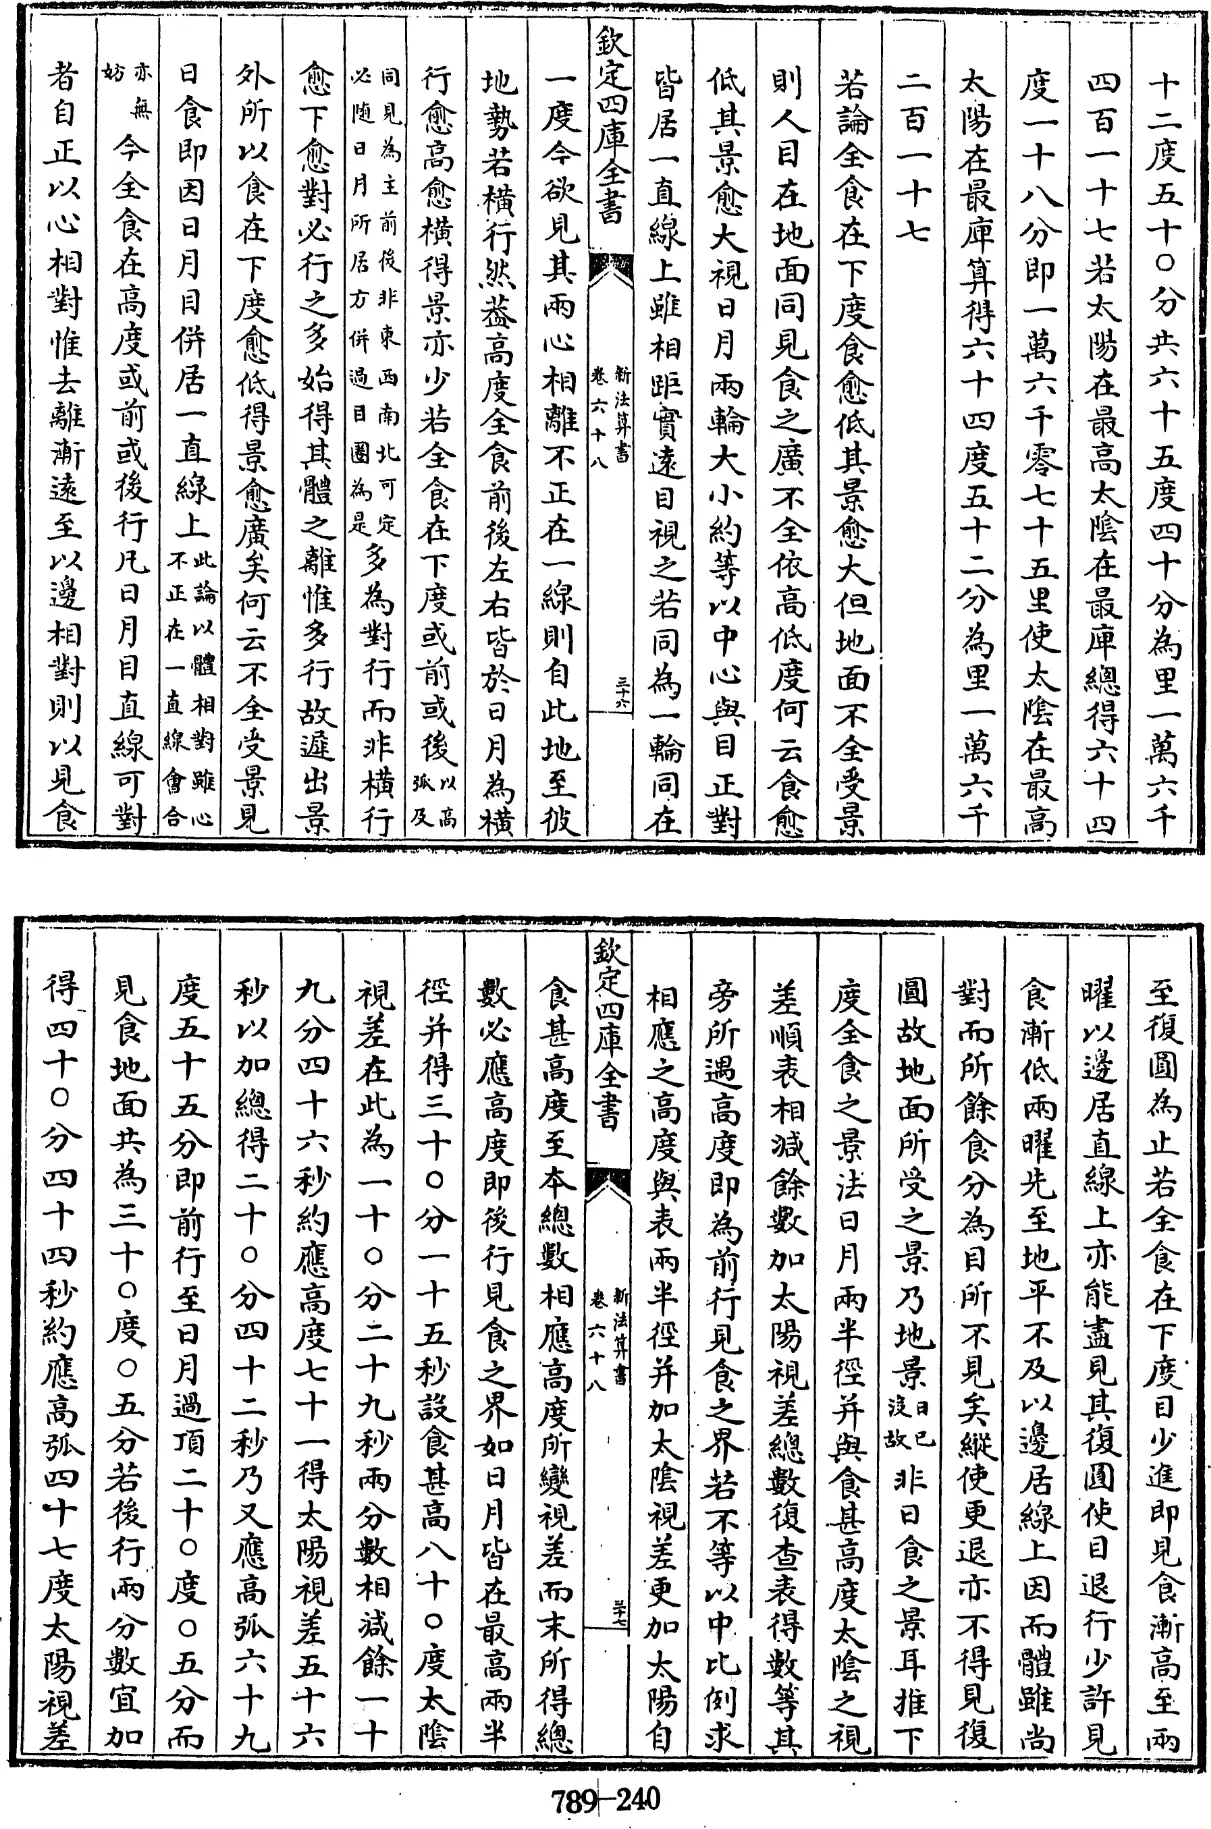 十二度五十〇分共六十五度四十分為里一萬六千
四百一十七若太陽在最高太陰在最庳總得六十四
度一十八分即一萬六千零七十五里使太陰在最高
太陽在最庳算得六十四度五十二分為里一萬六千
二百一十七
若論全食在下度食愈低其景愈大但地面不全受景
則人目在地面同見食之廣不全依高低度何云食愈
低其景愈大視日月兩輪大小約等以中心與目正對
皆居一直線上雖相距實遠目視之若同為一輪同在
欽定四庫全書
新法算書
卷六十八
三十六
一度今欲見其兩心相離不正在一線則自此地至彼
地勢若橫行然葢高度全食前後左右皆於日月為橫
行愈高愈橫得景亦少若全食在下度或前或後以高弧及
同見為主前後非東西南北可定必隨日月所居方併過目圈為是多為對行而非橫行
愈下愈對必行之多始得其體之離惟多行故遲出景
外所以食在下度愈低得景愈廣矣何云不全受景見
日食即因日月目併居一直線上此論以體相對雖心不正在一直線會合
亦無妨今全食在高度或前或後行凡日月目直線可對
者自正以心相對惟去離漸遠至以邊相對則以見食
至復圓為止若全食在下度目少進即見食漸高至兩
曜以邊居直線上亦能盡見其復圓使目退行少許見
食漸低兩曜先至地平不及以邊居線上因而體雖尚
對而所餘食分為目所不見矣縱使更退亦不得見復
圓故地面所受之景乃地景日已沒故非日食之景耳推下
度全食之景法日月兩半徑并與食甚高度太陰之視
差順表相減餘數加太陽視差總數復查表得數等其
旁所遇高度即為前行見食之界若不等以中比例求
相應之高度與表兩半徑并加太陰視差更加太陽自
欽定四庫全書
新法算書
卷六十八
三十七
食甚高度至本總數相應高度所變視差而末所得總
數必應高度即後行見食之界如日月皆在最高兩半
徑并得三十〇分一十五秒設食甚高八十〇度太陰
視差在此為一十〇分二十九秒兩分數相減餘一十
九分四十六秒約應高度七十一得太陽視差五十六
秒以加總得二十〇分四十二秒乃又應高弧六十九
度五十五分即前行至日月過頂二十〇度〇五分而
見食地面共為三十〇度〇五分若後行兩分數宜加
得四十〇分四十四秒約應高弧四十七度太陽視差
789-240